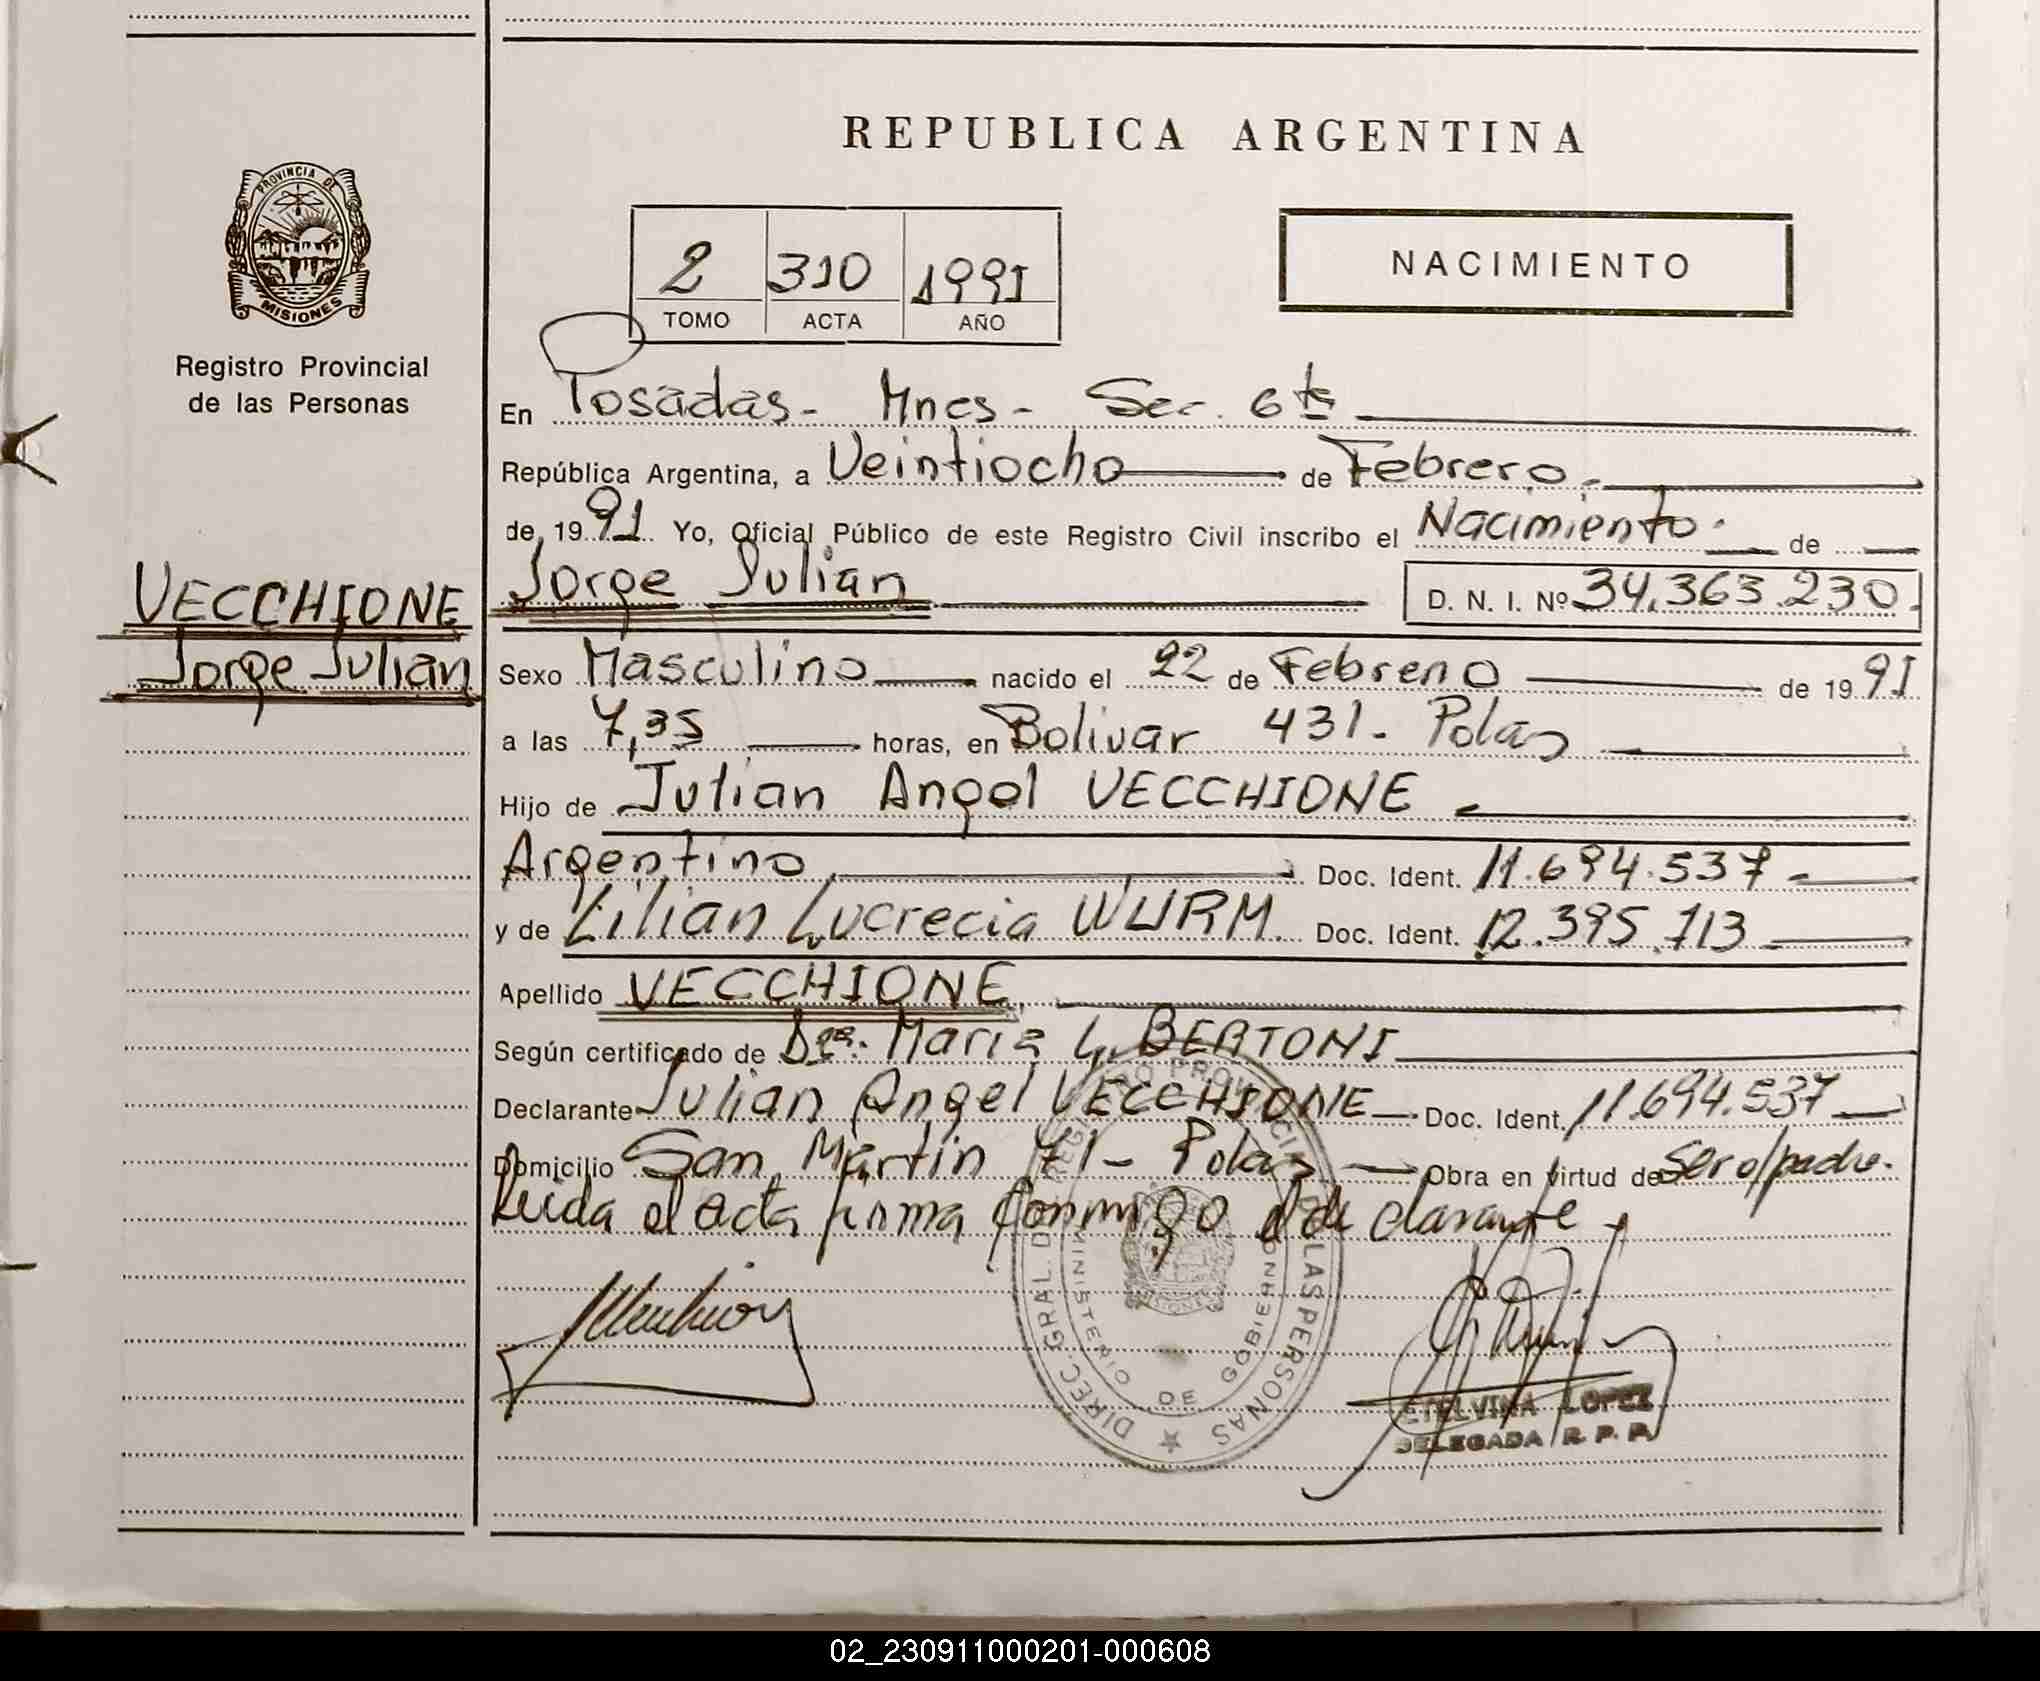 REPUBLICA ARGENTINA
PROVINCIA DE
MISIONES
Registro Provincial
de las Personas
2 310 1991
TOMO ACTA AÑO
NACIMIENTO
En Posadas- Mnes- Sec. 6ta
República Argentina, a Veintiocho de Febrero.-
de 1991 Yo, Oficial Público de este Registro Civil inscribo el Nacimiento.- de
VECCHIONE
Jorge Julian
Jorge Julian D. N. I. Nº 34.363.230.
Sexo Masculino nacido el 22 de Febrero de 1991
a las 7,35 horas, en Bolivar 431- Pdas
Hijo de Julian Angel VECCHIONE -
Argentino Doc. Ident. 11.694.537 -
y de Lilian Lucrecia WURM. Doc. Ident. 12.395.713 -
Apellido VECCHIONE.
Según certificado de Dra. Maria L. BERTONI
Declarante Julian Angel VECCHIONE Doc. Ident. 11.694.537
Domicilio San Martin 71- Pdas Obra en virtud de ser o/padre.
Leida el acta firma conmigo el declarante.
DIREC. GRAL. DEL REGISTRO PROVINCIAL DE LAS PERSONAS
MINISTERIO DE GOBIERNO
MISIONES
ETELVINA LOPEZ
DELEGADA R. P. P.
02_230911000201-000608